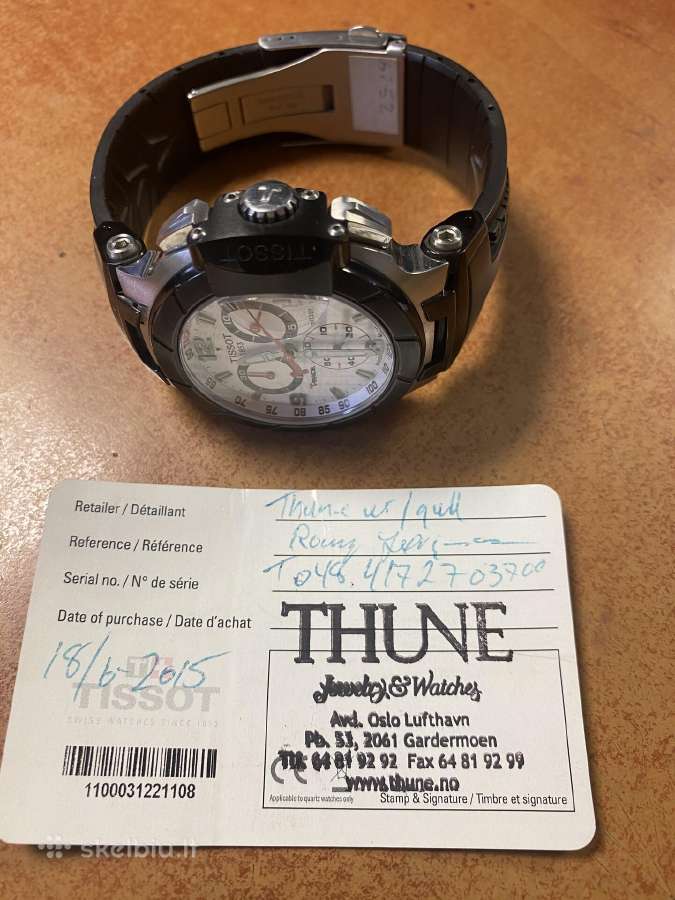 TISSOT
TISSOT
1853
Retailer / Détaillant
Thune ur / gull
Reference / Référence
Serial no. / N° de série
T048.4172703700
Date of purchase / Date d'achat
18/6-2015
THUNE
Jewelry & Watches
Avd. Oslo Lufthavn
Pb. 53, 2061 Gardermoen
Tlf. 64 81 92 92 Fax 64 81 92 99
www.thune.no
TISSOT
SWISS WATCHES SINCE 1853
1100031221108
Applicable to quartz watches only
Stamp & Signature / Timbre et signature
skelbiu.lt